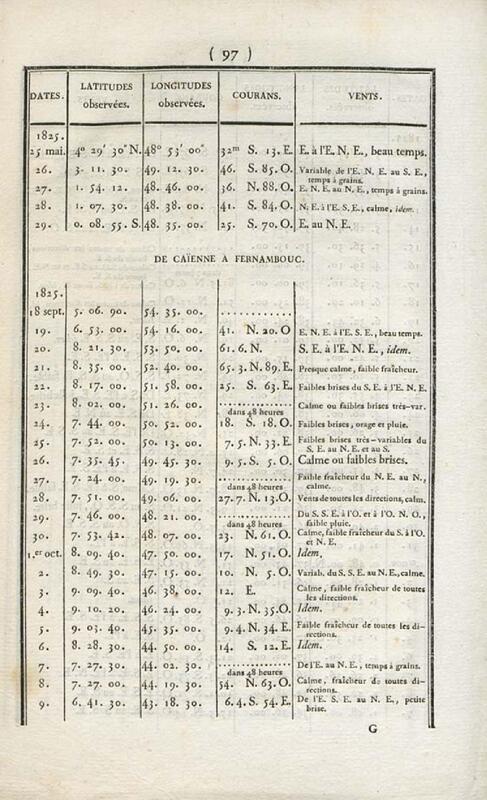 ( 97 )
DATES. LATITUDES observées. LONGITUDES observées. COURANS. VENTS.
1825.
25 mai. 4° 29′ 30″ N. 48° 53′ 00″ 32m S. 13. E. E. à l'E. N. E., beau temps.
26. 3. 11. 30. 49. 12. 30. 46. S. 85. O. Variable de l'E. N. E. au S. E., temps à grains.
27. 1. 54. 12. 48. 46. 00. 36. N. 88. O. E. N. E. au N. E., temps à grains.
28. 1. 07. 30. 48. 38. 00. 41. S. 84. O. N. E. à l'E. S. E., calme, idem.
29. 0. 08. 55. S. 48. 35. 00. 25. S. 70. O. E. au N. E.
DE CAÏENNE A FERNAMBOUC.
1825.
18 sept. 5. 06. 90. 54. 35. 00. ............
19. 6. 53. 00. 54. 16. 00. 41. N. 20. O E. N. E. à l'E. S. E., beau temps.
20. 8. 21. 30. 53. 50. 00. 61. 6. N. S. E. à l'E. N. E., idem.
21. 8. 35. 00. 52. 40. 00. 65. 3. N. 89. E. Presque calme, faible fraîcheur.
22. 8. 17. 00. 51. 58. 00. 25. S. 63. E. Faibles brises du S. E. à l'E. N. E.
23. 8. 02. 00. 51. 26. 00. ............ Calme ou faibles brises très-var.
dans 48 heures
24. 7. 44. 00. 50. 52. 00. 18. S. 18. O. Faibles brises, orage et pluie.
25. 7. 52. 00. 50. 13. 00. 7. 5. N. 33. E. Faibles brises très-variables du S. E. au N. E. et au S.
26. 7. 35. 45. 49. 45. 30. 9. 5. S. 5. O. Calme ou faibles brises.
27. 7. 24. 00. 49. 19. 30. ............ Faible fraîcheur du N. E. au N., calme.
dans 48 heures
28. 7. 51. 00. 49. 06. 00. 27. 7. N. 13. O. Vents de toutes les directions, calm.
29. 7. 46. 00. 48. 21. 00. ............ Du S. S. E. à l'O. et à l'O. N. O., faible pluie.
dans 48 heures
30. 7. 53. 42. 48. 07. 00. 23. N. 61. O. Calme, faible fraîcheur du S. à l'O. et N. E.
1.er oct. 8. 09. 40. 47. 50. 00. 17. N. 51. O. Idem.
2. 8. 49. 30. 47. 15. 00. 10. N. 5. O. Variab. du S. S. E. au N. E., calme.
3. 9. 09. 40. 46. 38. 00. 12. E. Calme, faible fraîcheur de toutes les directions.
4. 9. 10. 20. 46. 24. 00. 9. 3. N. 35. O. Idem.
5. 9. 03. 40. 45. 35. 00. 9. 4. N. 34. E. Faible fraîcheur de toutes les directions.
6. 8. 28. 30. 44. 50. 00. 14. S. 12. E. Idem.
7. 7. 27. 30. 44. 02. 30. ............ De l'E. au N. E., temps à grains.
dans 48 heures
8. 7. 27. 00. 44. 19. 30. 54. N. 63. O. Calme, fraîcheur de toutes directions.
9. 6. 41. 30. 43. 18. 30. 6. 4. S. 54. E. De l'E. S. E. au N. E., petite brise.
G